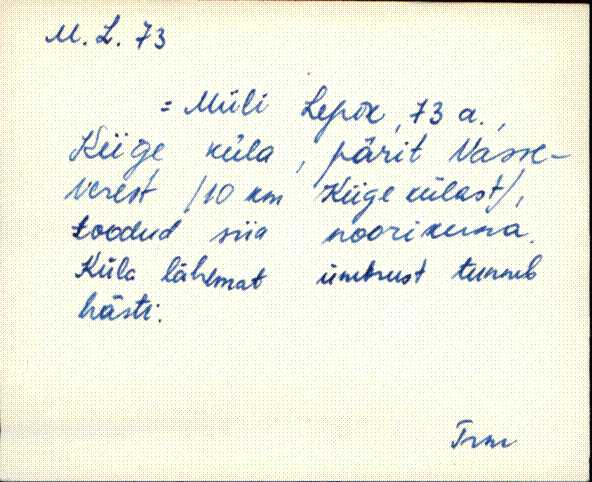 M. L. 73
= Miili Lepik, 73 a.,
Kiige küla, pärit Vasse-
verest /10 km Kiige külast/,
toodud siia noorikuna.
Küla lähemat ümbrust tunneb
hästi.